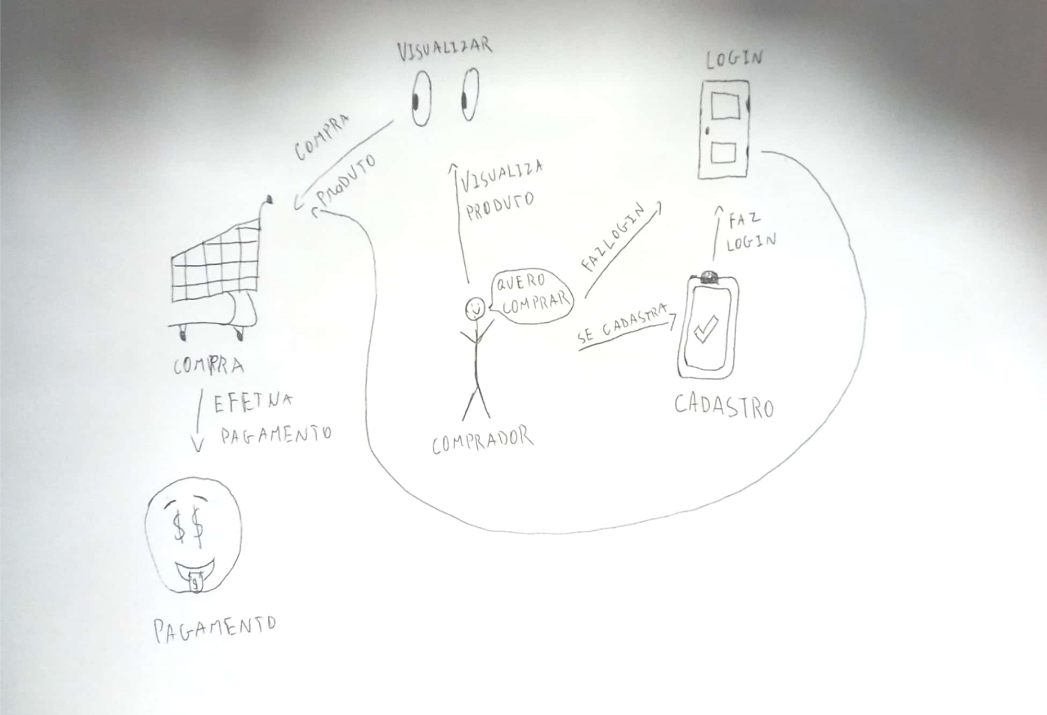 VISUALIZAR
LOGIN
COMPRA
PRODUTO
VISUALIZA
PRODUTO
FAZ LOGIN
FAZ
LOGIN
QUERO
COMPRAR
SE CADASTRA
COMPRA
CADASTRO
EFETUA
PAGAMENTO
COMPRADOR
$$
$
PAGAMENTO